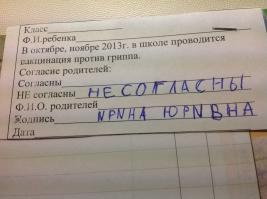 Класс
Ф.И.ребенка
В октябре, ноябре 2013г. в школе проводится
вакцинация против гриппа.
Согласие родителей:
Согласны
НЕ согласны НЕ СОГЛАСНЫ
Ф.И.О. родителей
Подпись ИРИНА ЮРИВНА
Дата